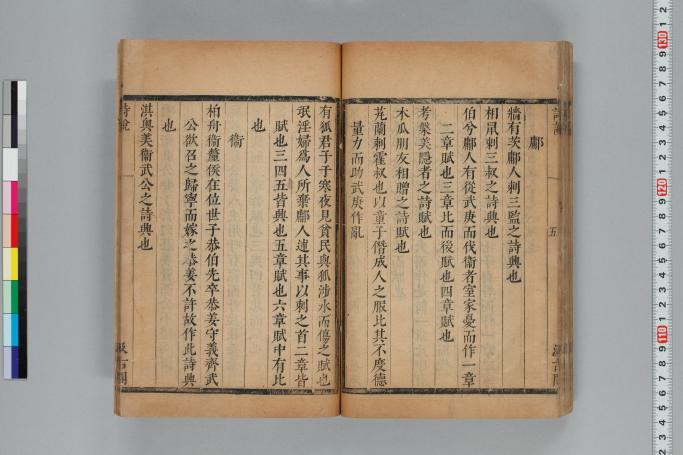 鄘
牆有茨鄘人刺三監之詩興也
相鼠刺三叔之詩興也
伯兮鄘人有從武庚而伐衞者室家憂而作一章
二章賦也三章比而後賦也四章賦也
考槃美隱者之詩賦也
木瓜朋友相贈之詩賦也
芄蘭刺霍叔也以童子僭成人之服比其不度德
量力而助武庚作亂
五
有狐君子于寒夜見貧民與狐涉水而傷之賦也
氓淫婦爲人所棄鄘人述其事以刺之首二章皆
賦也三四五皆興也五章賦也六章賦中有比
也
衞
柏舟衞釐侯在位世子恭伯先卒恭姜守義齊武
公欲召之歸寧而嫁之恭姜不許故作此詩興
也
淇奧美衞武公之詩興也
詩說
汲古閣